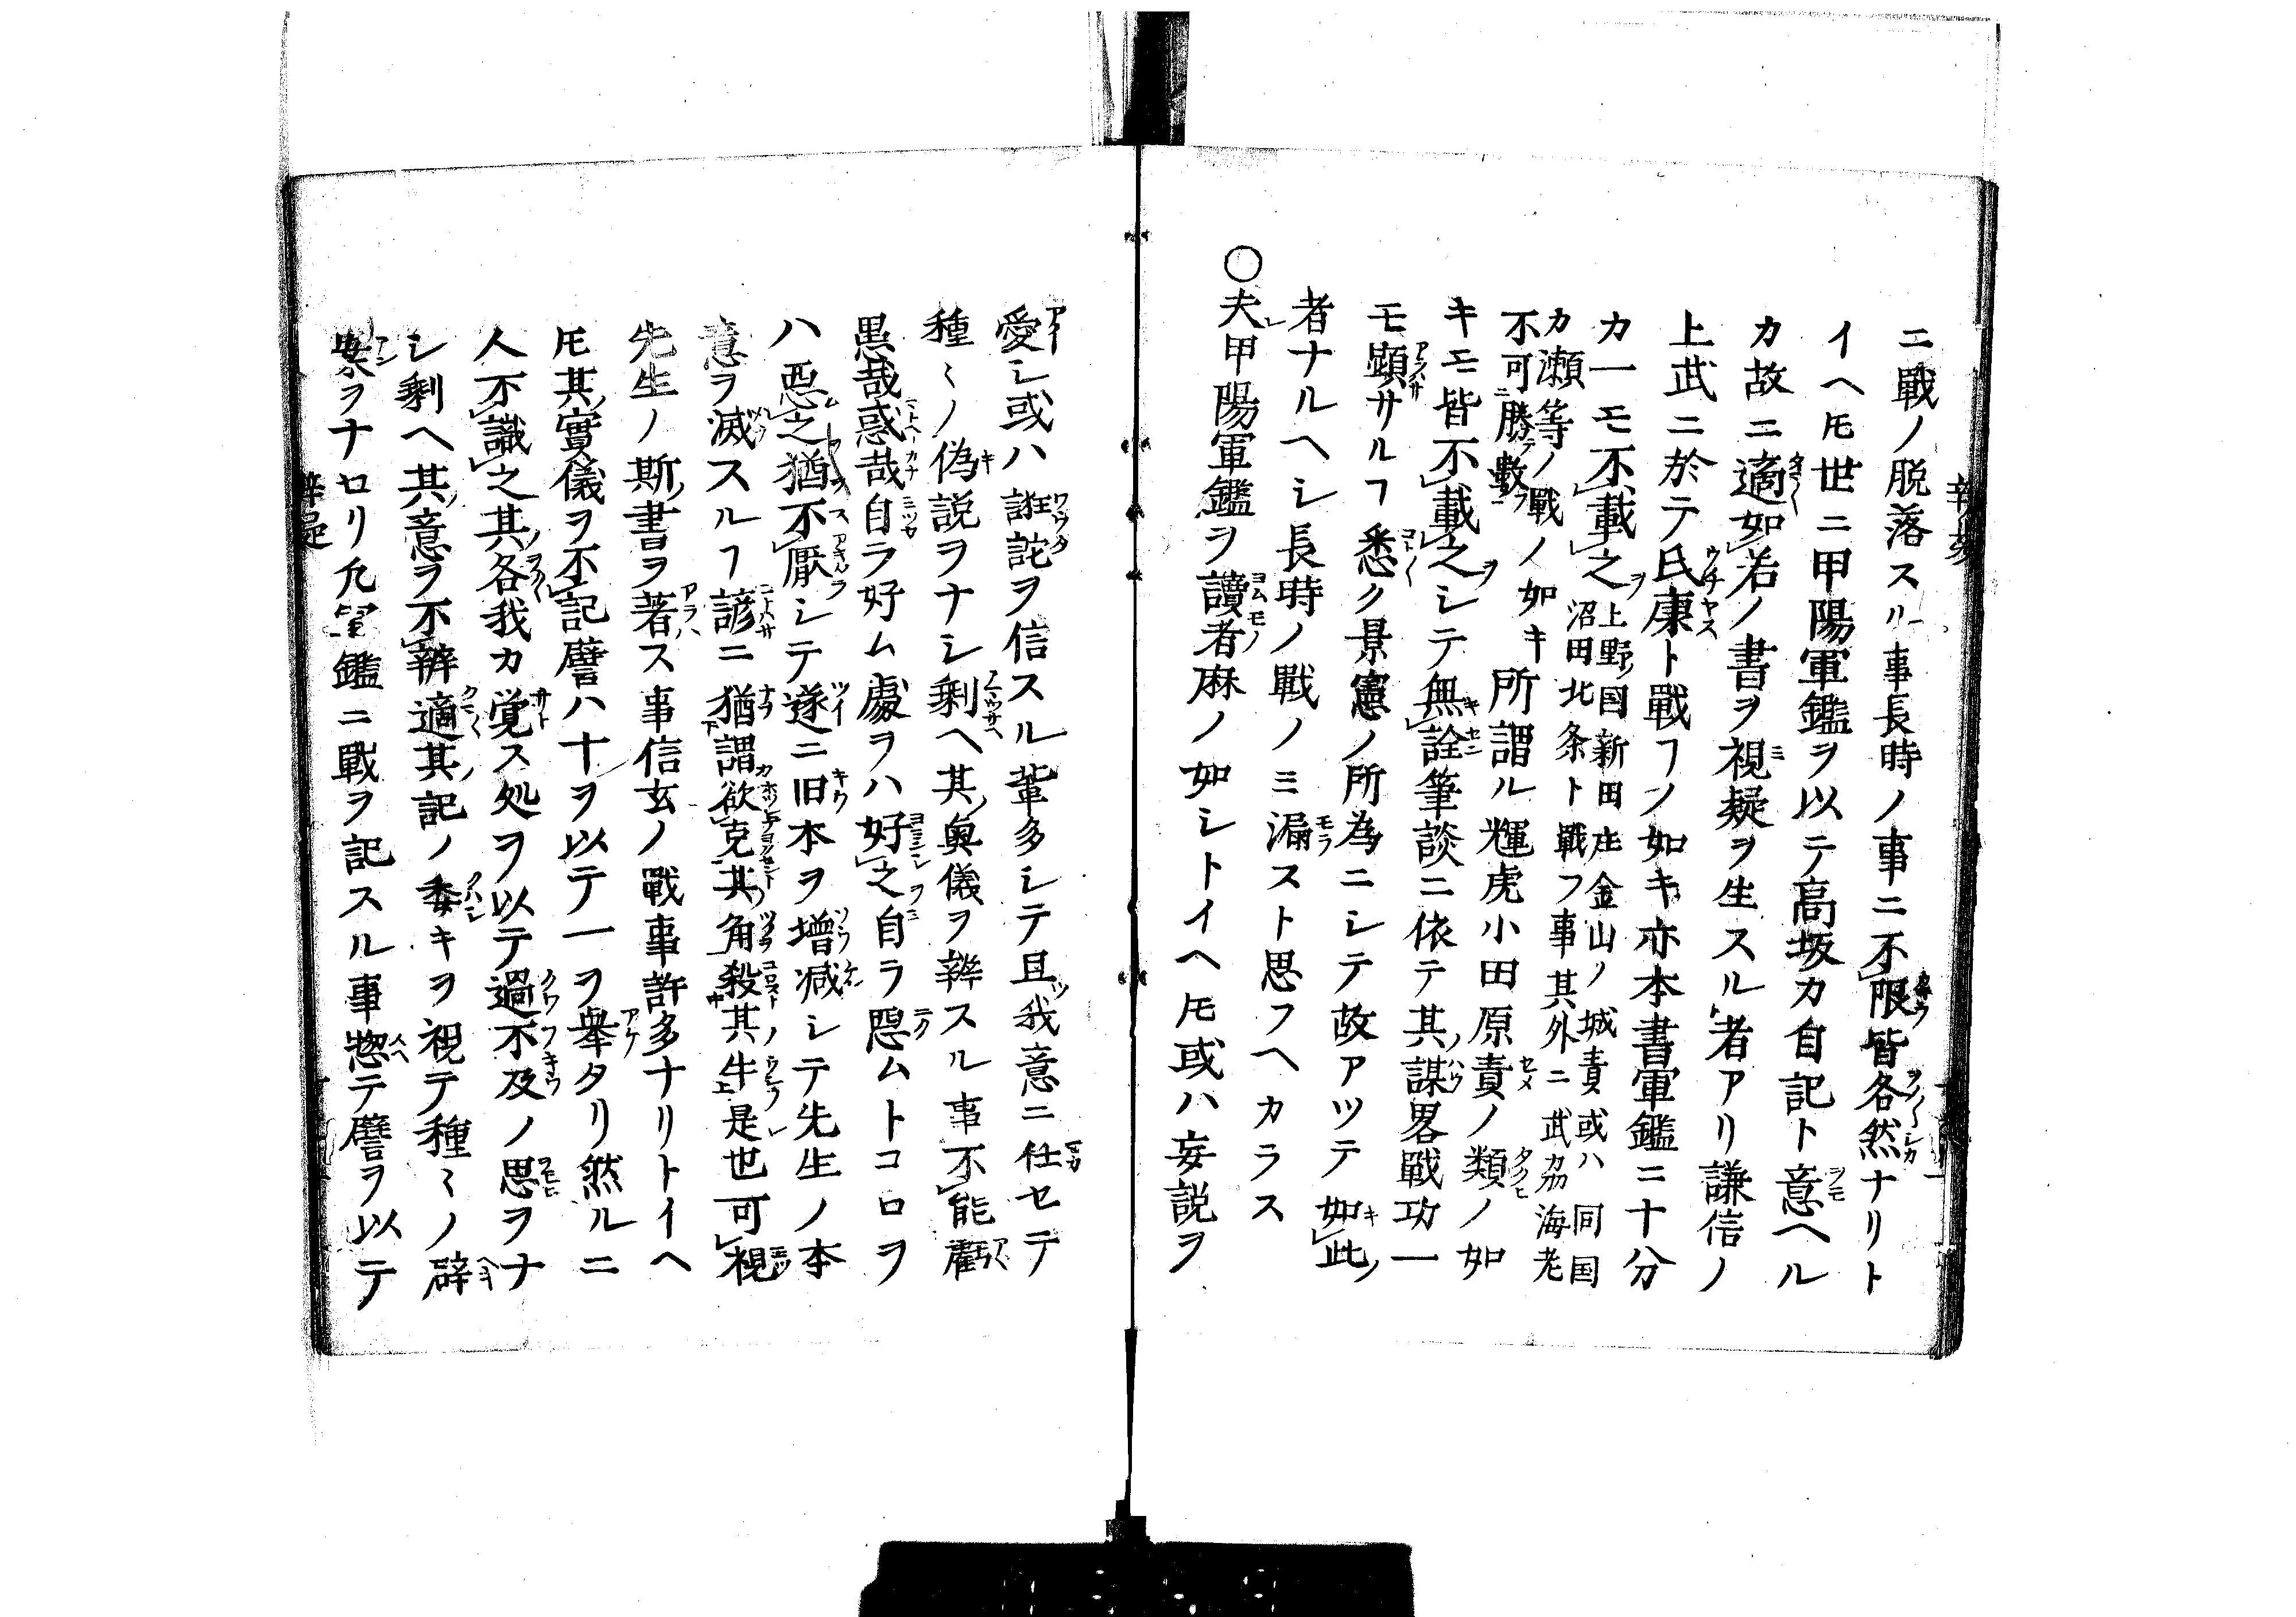 ニ戰ノ脱落スル事長時ノ事ニ不限皆各然ナリト
イヘ𪜈世ニ甲陽軍鑑ヲ以テ高坂カ自記ト意ヘル
カ故ニ適如若ノ書ヲ視疑ヲ生スル者アリ謙信ノ
上武ニ於テ氏康ト戰フノ如キ亦本書軍鑑ニ十分
カ一モ不載之
上野国新田庄金山ノ城責或ハ同国
沼田北条ト戰フ事其外ニ武刕海老
カ瀬等ノ戰ノ如キ
不可勝數
所謂ル輝虎小田原責ノ類ノ如
キモ皆不載之シテ無詮筆談ニ依テ其謀畧戰功一
モ顕サルヿ悉ク景憲ノ所為ニシテ故アツテ如此
者ナルヘシ長時ノ戰ノミ漏スト思フヘカラス
○夫甲陽軍鑑ヲ讀者麻ノ如シトイヘ𪜈或ハ妄説ヲ
愛シ或ハ誑詫ヲ信スル輩多シテ且我意ニ任セテ
種〻ノ偽説ヲナシ剰ヘ其奥儀ヲ辨スル事不能
愚哉惑哉自ラ好ム處ヲハ好之自ラ惡ムトコロヲ
ハ惡之猶不厭シテ遂ニ旧本ヲ増減シテ先生ノ本
意ヲ滅スルヿ諺ニ猶謂欲克其角殺其牛是也可視
先生ノ斯書ヲ著ス事信玄ノ戰事許多ナリトイヘ
𪜈其實儀ヲ不記譬ハ十ヲ以テ一ヲ舉タリ然ルニ
人不識之其各我カ覚ス処ヲ以テ過不及ノ思ヲナ
シ剰ヘ其意ヲ不辨適其記ノ委キヲ視テ種〻ノ辟
案ヲナセリ凡軍鑑ニ戰ヲ記スル事惣テ譬ヲ以テ